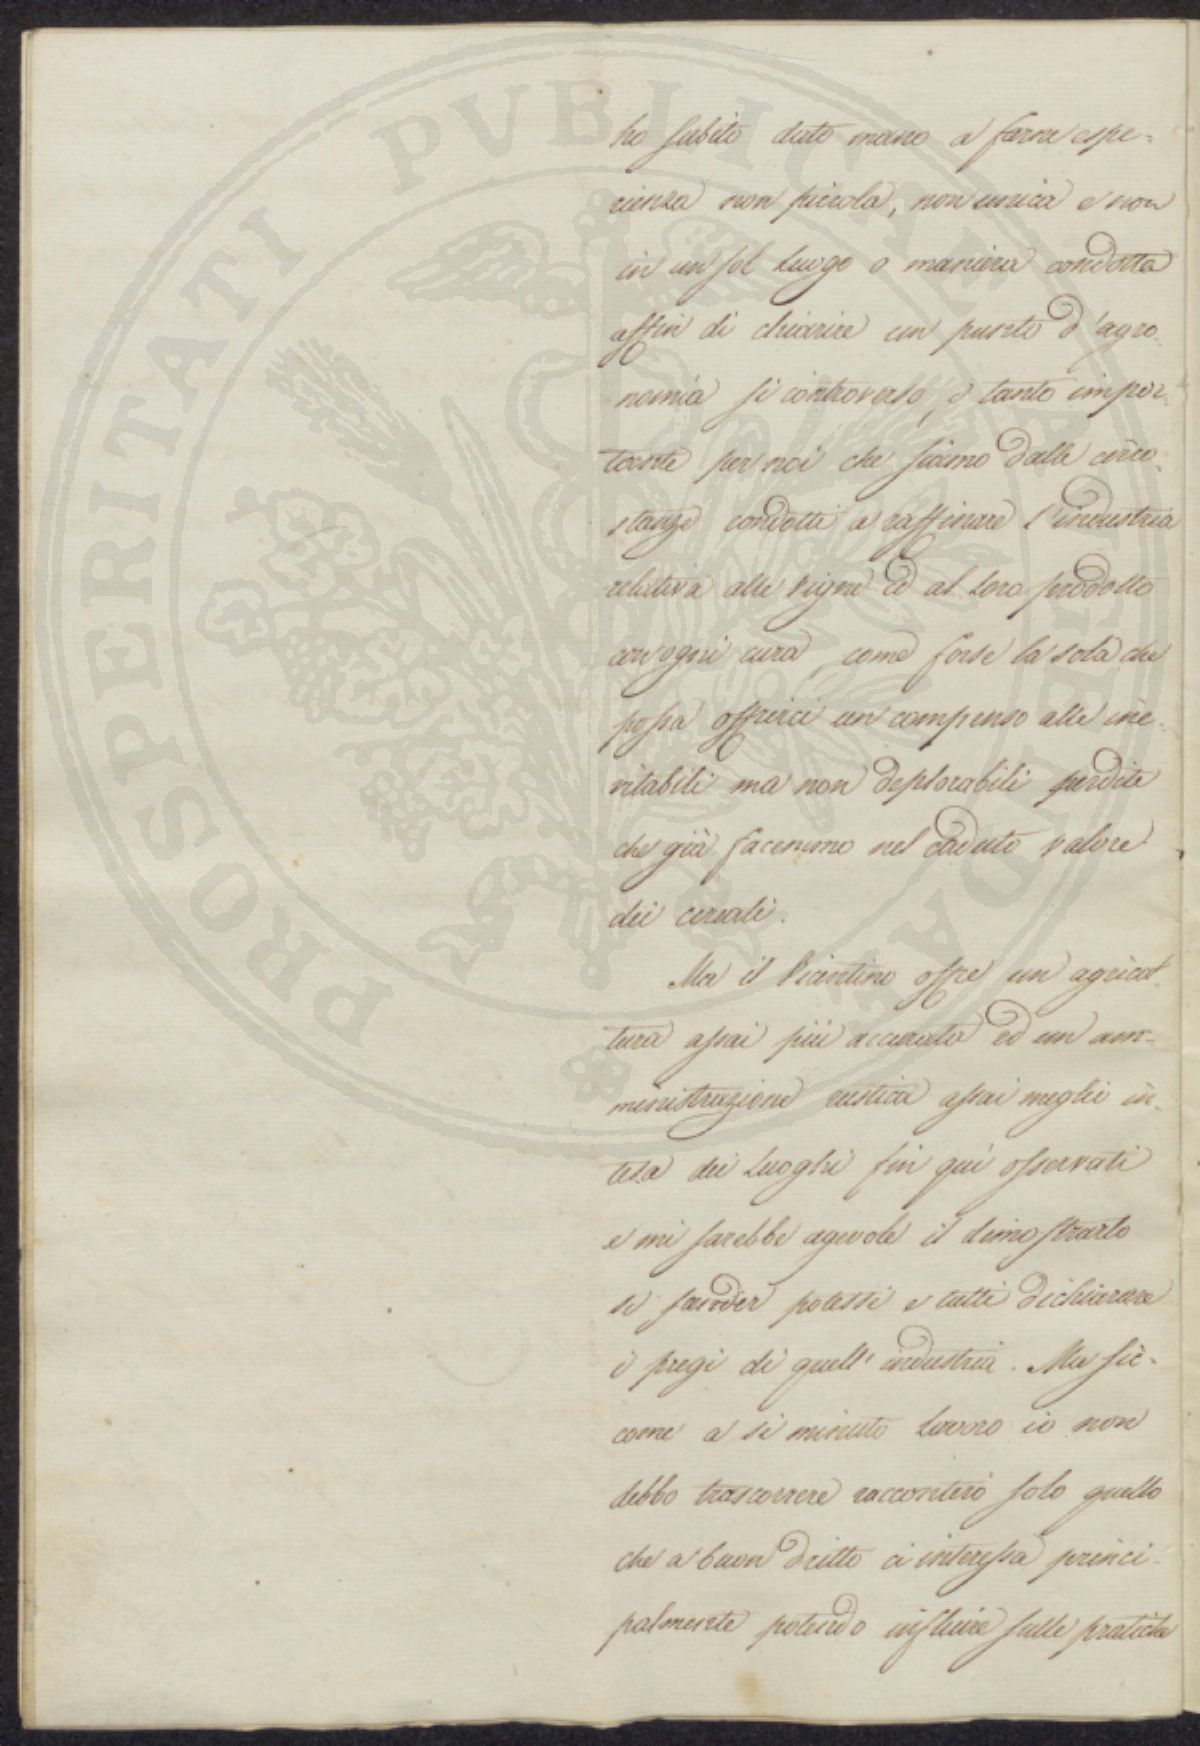 PROSPERITATI PUBLICAE AUGENDAE
ho subito dato mano a farne espe=
rienza non piccola, non unica e non
in un sol luogo o maniera condotta
affin di chiarire un punto d'agro=
nomia si controverso, e tanto impor=
tante per noi che siamo dalle circo=
stanze condotti a raffinare l'industria
relativa alle vigne ed al loro prodotto
con ogni cura, come forse la sola che
possa offrirci un compenso alle ine=
vitabili ma non deplorabili perdite
che già facemmo nel caduto valore
dei cereali.
Ma il Vicentino offre un agricol=
tura assai più accurata ed un am=
ministrazione rustica assai meglio in=
tesa dei luoghi fin qui osservati
e mi sarebbe agevole il dimostrarlo
se potessi e tutti dichiarare
i pregi di quell'industria. Ma sic=
come a si minuto lavoro io non
debbo trascorrere racconterò solo quello
che a buon dritto ci interessa princi=
palmente potendo influire sulle pratiche